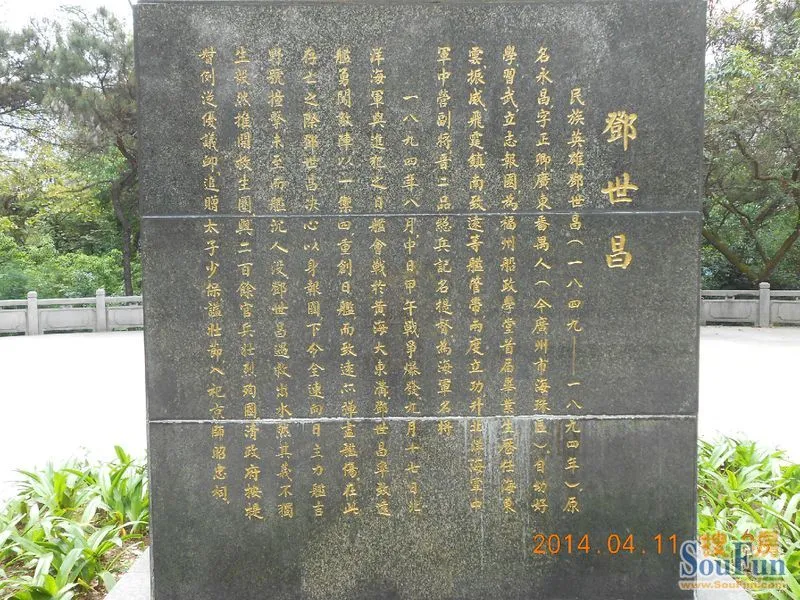 鄧世昌
民族英雄鄧世昌(一八四九——一八九四年)，原
名永昌字正卿廣東番禺人(今廣州市海珠區)自幼好
學習武立志報國為福州船政學堂首屆畢業生歷任海東
雲振威飛霆鎮南致遠等艦管帶兩度立功升北洋海軍中
軍中營副將晉二品總兵記名提督為海軍名將
一八九四年八月中日甲午戰爭爆發九月十七日北
洋海軍與進犯之日艦會戰於黃海大東溝鄧世昌率致遠
艦勇闖敵陣以一禦四重創日艦而致遠亦彈盡艦傷在此
存亡之際鄧世昌決心以身報國下令全速向日主力艦吉
野號撞擊未至而艦沉人沒鄧世昌遇救出水然其義不獨
生毅然推開救生圈與二百餘官兵壯烈殉國清政府按提
督例從優議卹追贈太子少保謚壯節入祀京師昭忠祠
2014.04.11
搜房
SouFun
www.SouFun.com